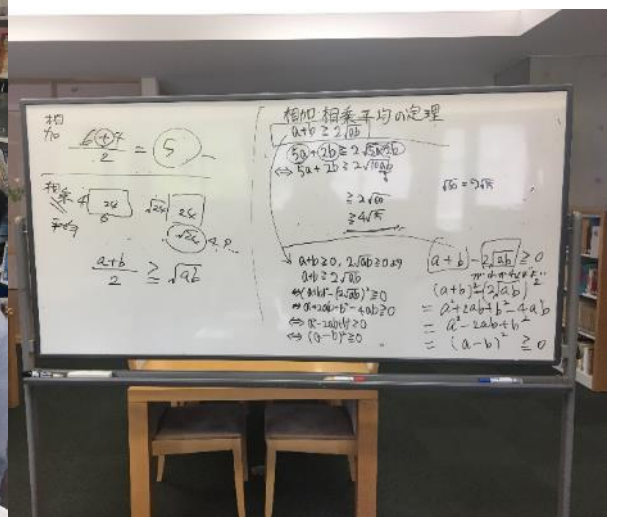 相加
6+4/2 = 5
相乗 4 24 6 √24 24
平均 √24 4.8...
a+b/2 ≧ √ab
相加・相乗平均の定理
a+b ≧ 2√ab
5a+2b ≧ 2√5a・2b
⇔ 5a+2b ≧ 2√10ab
≧ 2√60
≧ 4√15
√60 = 2√15
a+b≧0, 2√ab≧0より
a+b ≧ 2√ab
⇔ (a+b)²-(2√ab)²≧0
⇔ a²+2ab+b²-4ab≧0
⇔ a²-2ab+b²≧0
⇔ (a-b)²≧0
a+b - 2√ab ≧ 0
(a+b)²-(2√ab)²
= a²+2ab+b²-4ab
= a²-2ab+b²
= (a-b)² ≧ 0